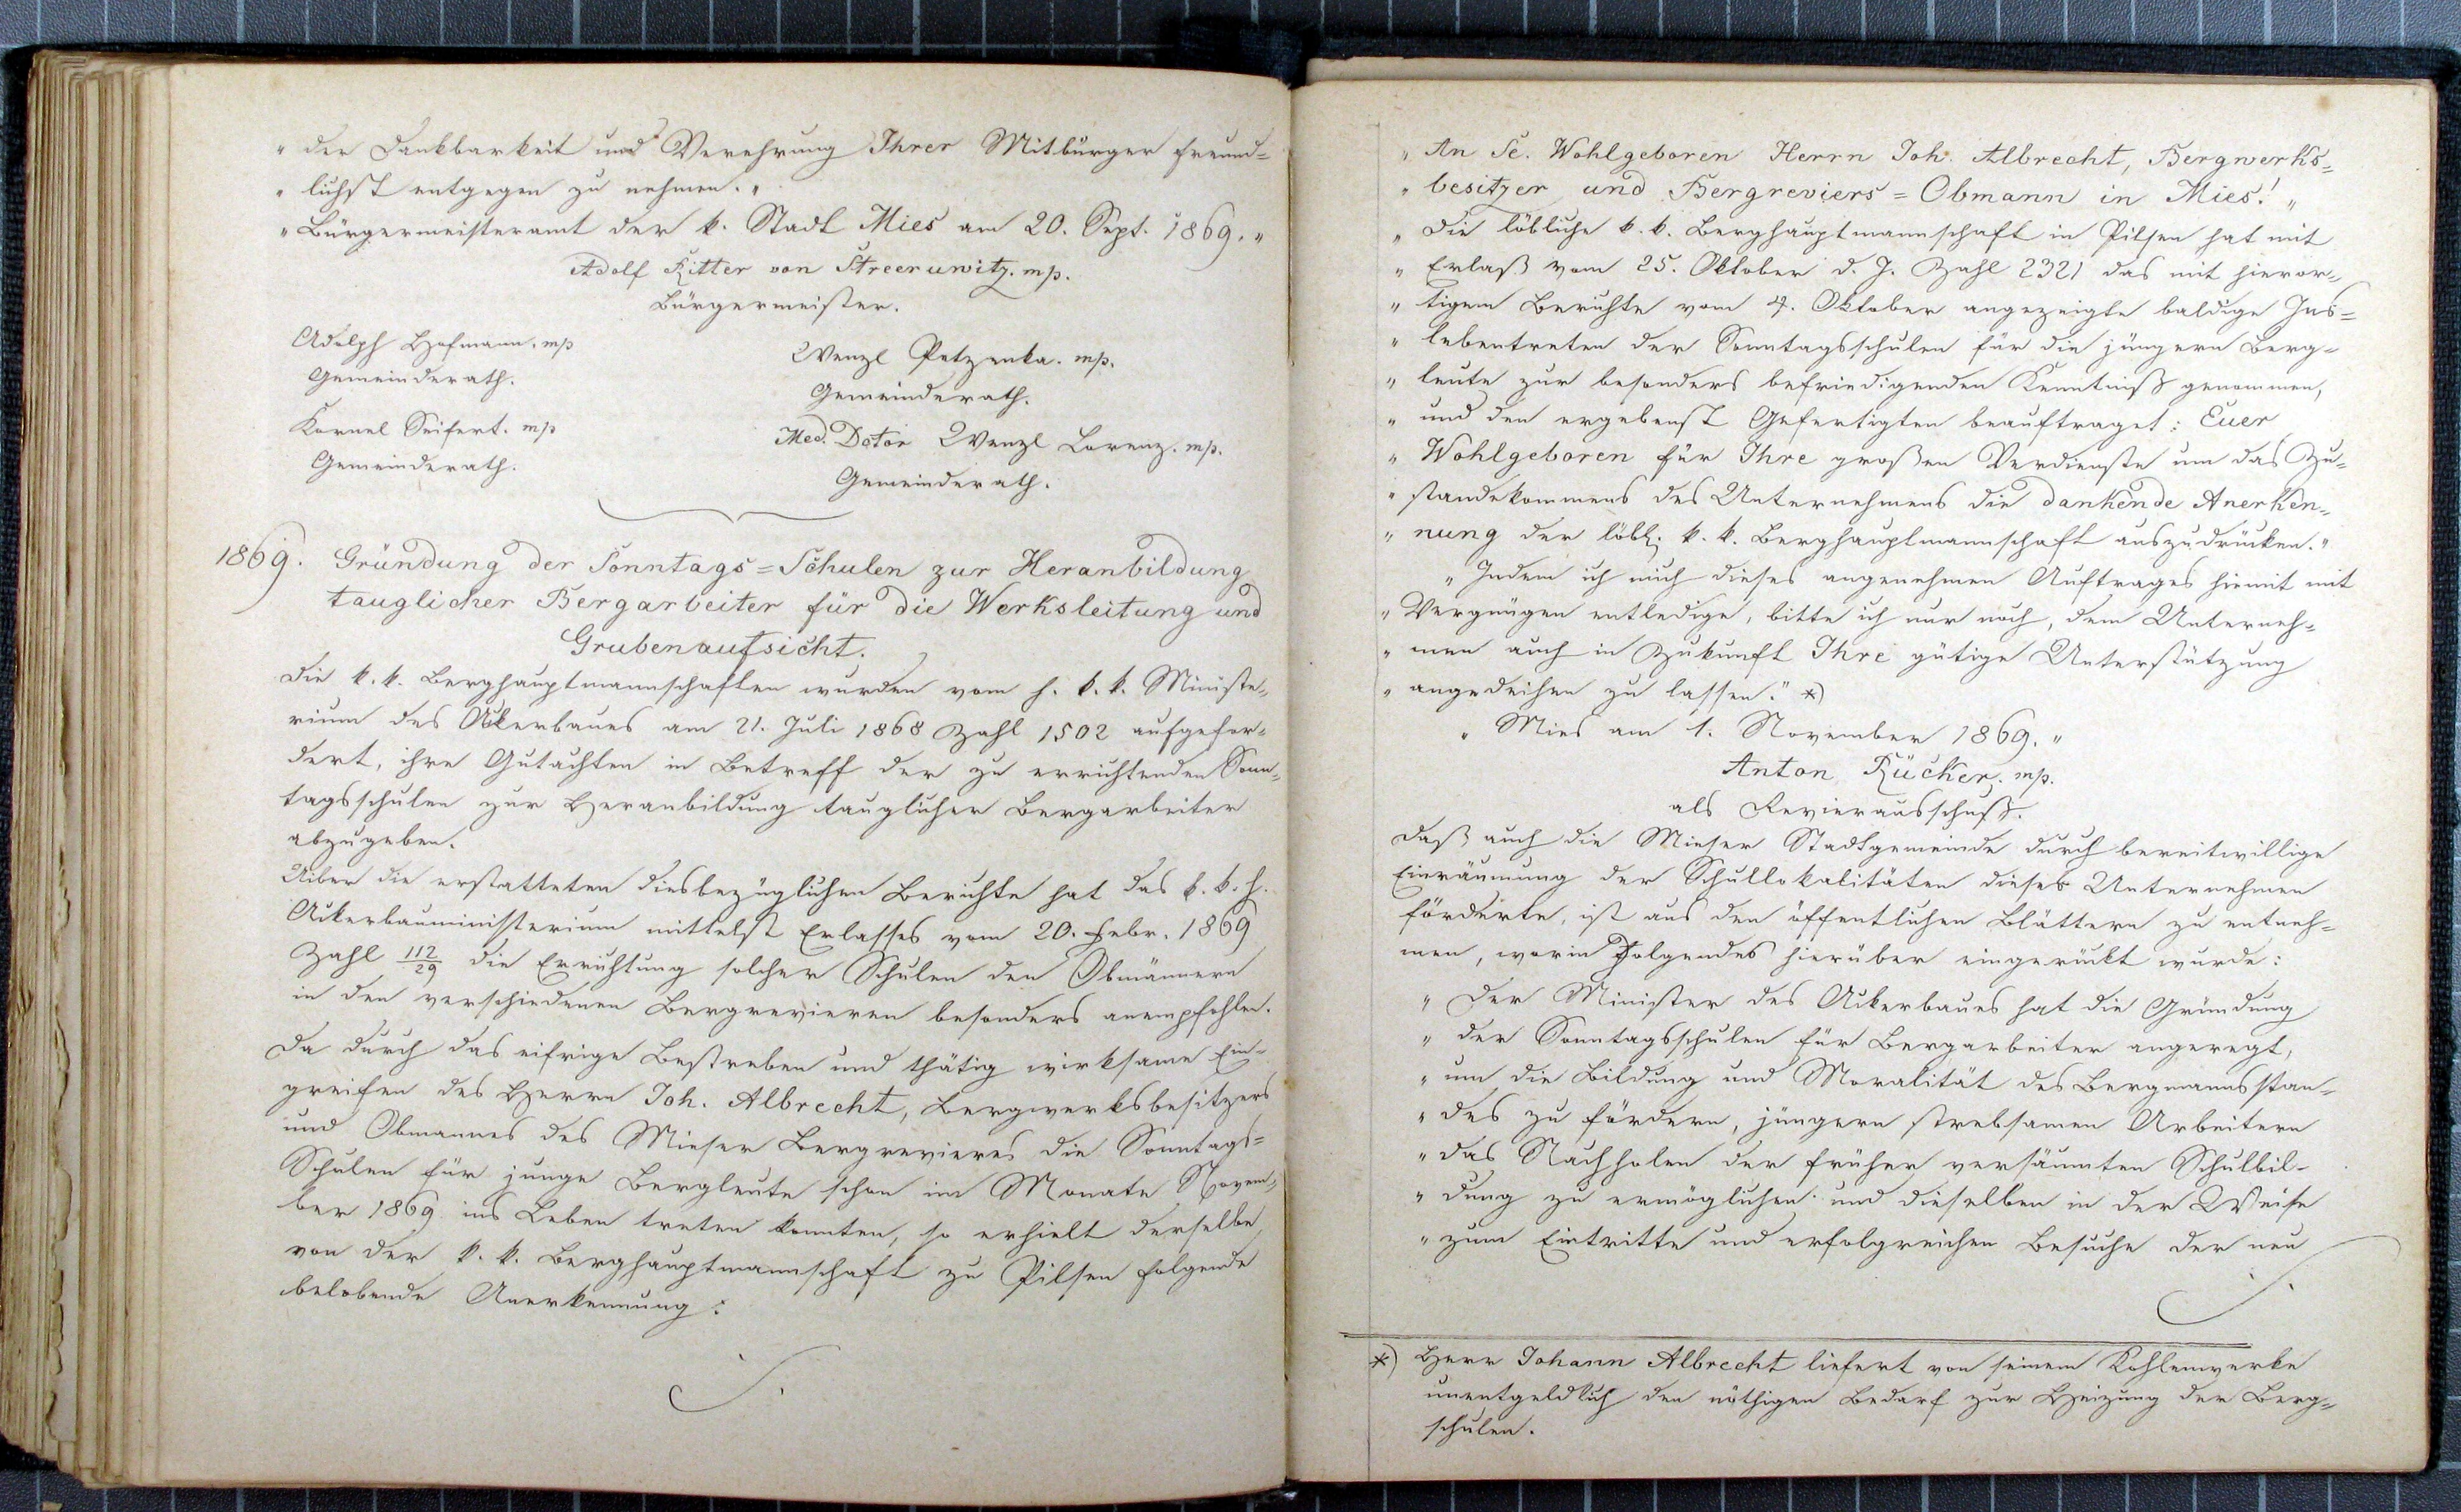 " der Dankbarkeit und Verehrung Ihrer Mitbürger freund=
" lichst entgegen zu nehmen. "
" Bürgermeisteramt der k. Stadt Mies am 20. Sept. 1869. "
Adolf Ritter von Streeruwitz. mp.
Bürgermeister.
Adolph Hofmann. mp
Gemeinderath.
Wenzl Petzenka. mp.
Gemeinderath.
Kornel Seifert. mp
Gemeinderath.
Med. Dotor Wenzl Lorenz. mp.
Gemeinderath.
1869. Gründung der Sonntags=Schulen zur Heranbildung
tauglicher Bergarbeiter für die Werksleitung und
Grubenaufsicht.
Die k. k. Berghauptmannschaften wurden vom h. k. k. Ministe=
rium des Ackerbaues am 21. Juli 1868 Zahl 1502 aufgefor=
dert, ihre Gutachten in Betreff der zu errichtenden Sonn=
tagsschulen zur Heranbildung tauglicher Bergarbeiter
abzugeben.
Uiber die erstatteten diesbezüglichen Berichte hat das k. k. h.
Ackerbauministerium mittelst Erlasses vom 20. Febr. 1869
Zahl 112/29 die Errichtung solcher Schulen den Obmännern
in den verschiedenen Bergrevieren besonders anempfohlen.
Da durch das eifrige Bestreben und thätig wirksame Ein=
greifen des Herrn Joh. Albrecht, Bergwerksbesitzers
und Obmannes des Mieser Bergrevieres die Sonntags=
Schulen für junge Bergleute schon im Monate Novem=
ber 1869 ins Leben treten konnten, so erhielt derselbe
von der k. k. Berghauptmannschaft zu Pilsen folgende
belobende Anerkennung:
" An Se. Wohlgeboren Herrn Joh. Albrecht, Bergwerks=
" besitzer und Bergreviers=Obmann in Mies! "
" Die löbliche k. k. Berghauptmannschaft in Pilsen hat mit
" Erlaß vom 25. Oktober d. J. Zahl 2321 das mit hieror=
" tigem Berichte vom 4. Oktober angezeigte baldige Ins=
" lebentreten der Sonntagsschulen für die jüngern Berg=
" leute zur besonders befriedigenden Kenntniß genommen,
" und den ergebenst Gefertigten beauftraget: Euer
" Wohlgeboren für Ihre großen Verdienste um das Zu=
" standekommens des Unternehmens die dankende Anerken=
" nung der löbl. k. k. Berghauptmannschaft auszudrücken. "
" Indem ich mich dieses angenehmen Auftrages hiemit mit
" Vergnügen entledige, bitte ich nur noch, dem Unterneh=
" men auch in Zukunft Ihre gütige Unterstützung
" angedeihen zu lassen." *)
" Mies am 1. November 1869. "
Anton Rücker, mp.
als Revierausschuß.
Daß auch die Mieser Stadtgemeinde durch bereitwillige
Einräumung der Schullokalitäten dieses Unternehmen
förderte, ist aus den öffentlichen Blättern zu entneh=
men, worin Folgendes hierüber eingerückt wurde:
" Der Minister des Ackerbaues hat die Gründung
" der Sonntagsschulen für Bergarbeiter angeregt,
" um die Bildung und Moralität des Bergmannsstan=
" des zu fördern, jüngern strebsamen Arbeitern
" das Nachholen der früher versäumten Schulbil-
" dung zu ermöglichen und dieselben in der Weise
" zum Eintritte und erfolgreichen Besuche der neu
*) Herr Johann Albrecht liefert von seinem Kohlenwerke
unentgeldlich den nöthigen Bedarf zur Heizung der Berg=
schulen.